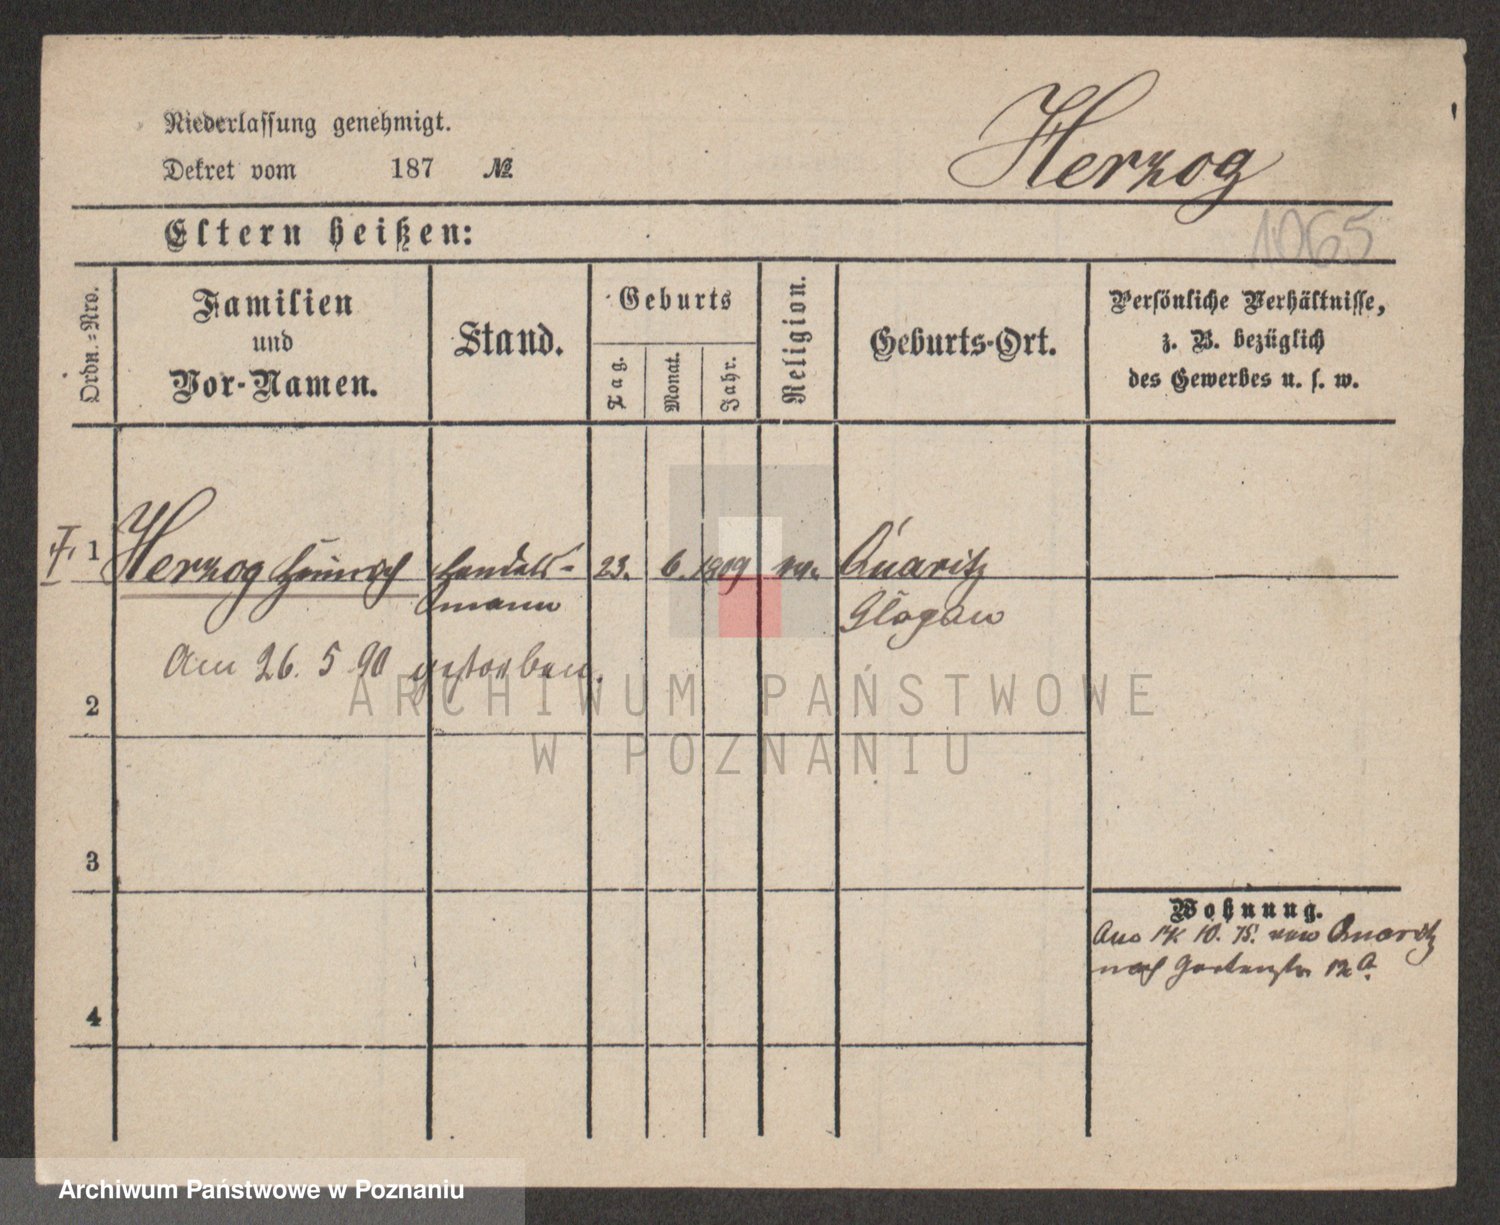 Niederlassung genehmigt.
Dekret vom 187 №
Herzog
1065
Eltern heißen:
Ordn.=Nro.
Familien
und
Vor-Namen.
Stand.
Geburts
Tag.
Monat.
Jahr.
Religion.
Geburts-Ort.
Persönliche Verhältnisse,
z. B. bezüglich
des Gewerbes u. s. w.
1 Herzog Heinrich Handels- 23. 6. 1809 ev. Quaritz
mann Glogau
Am 26. 5 90 gestorben.
2
3
4
Wohnung.
Aus 14. 10. 75. von Quaritz
nach Gartenstr 12 a.
ARCHIWUM PAŃSTWOWE
W POZNANIU
Archiwum Państwowe w Poznaniu